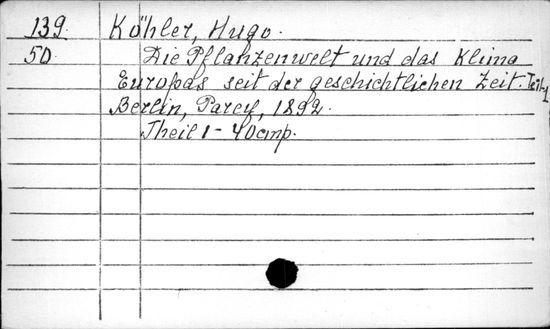 139. Köhler, Hugo.
50. Die Pflanzenwelt und das Klima
Europas seit der geschichtlichen Zeit. Teil. 1
Berlin, Parey, 1892.
Theil 1 - 40amp.